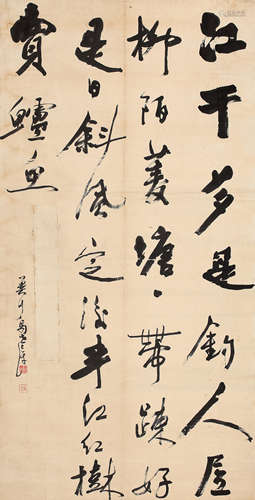 江干多是釣人居
柳陌菱塘一帶疎好
是日斜風定後半江紅樹
賣鱸魚